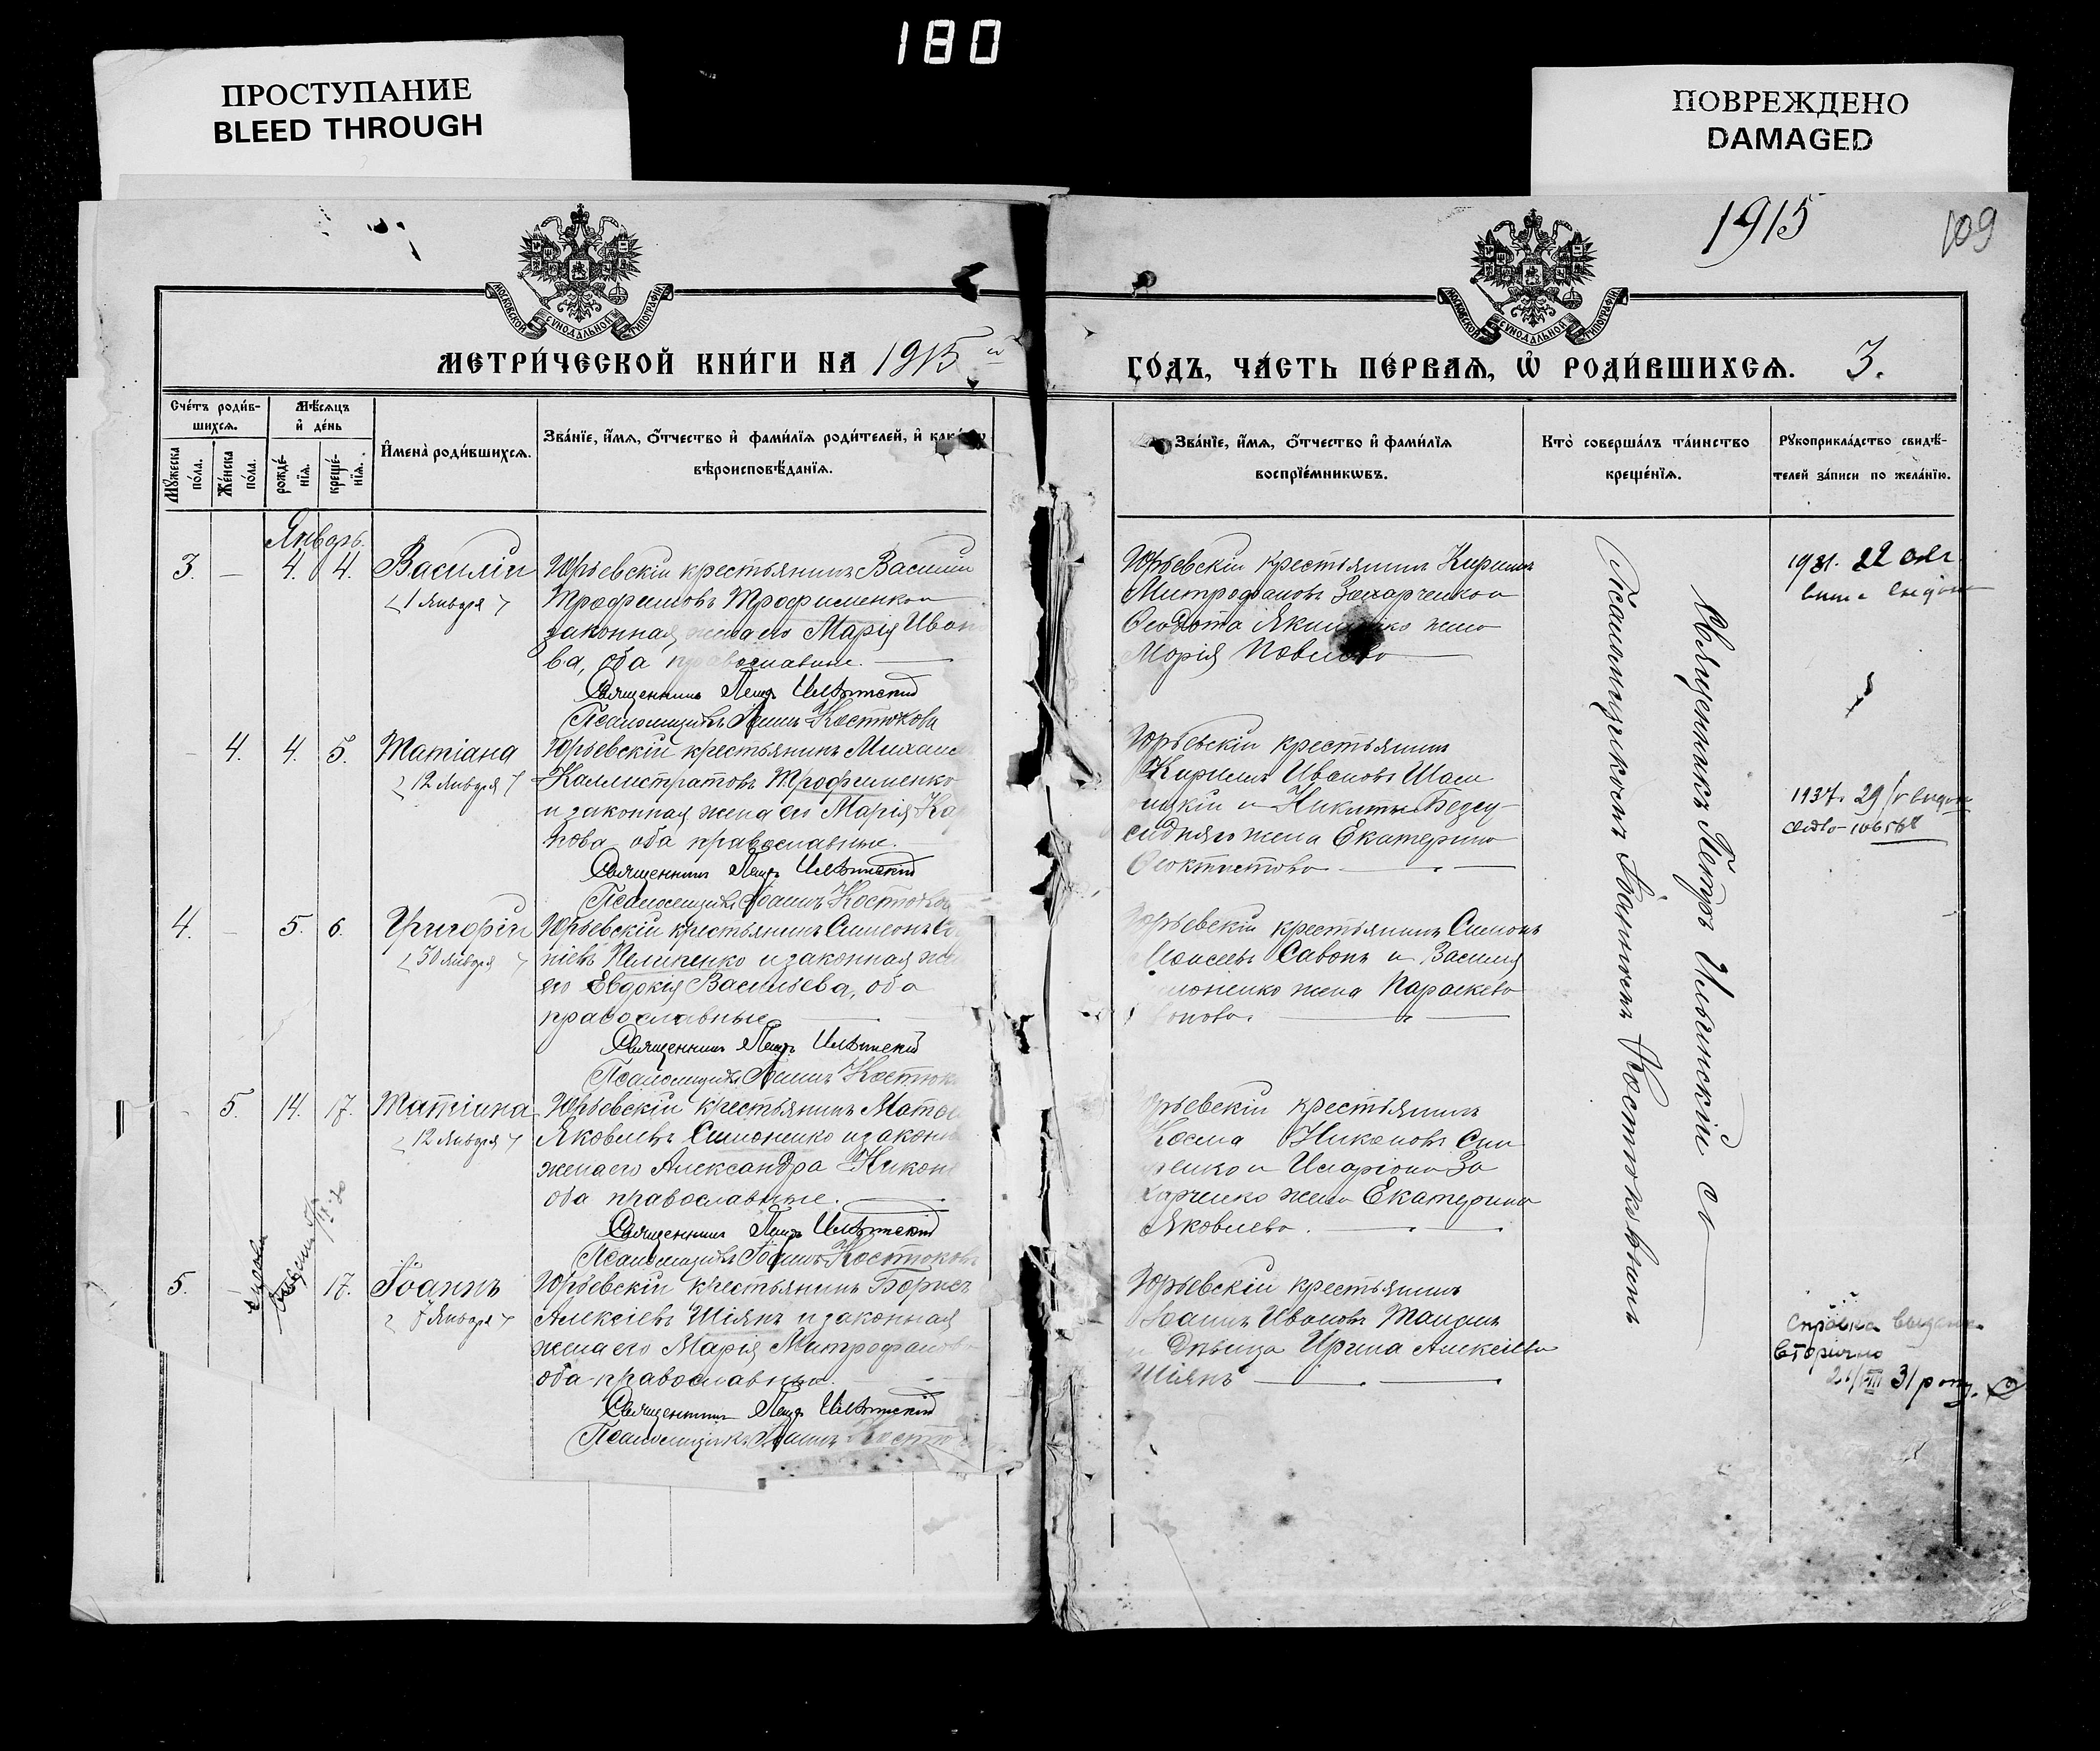 180
ПРОСТУПАНИЕ
BLEED THROUGH
ПОВРЕЖДЕНО
DAMAGED
1915
109
МОСКОВСКОЙ СѴНОДАЛЬНОЙ ТИПОГРАФІИ
МОСКОВСКОЙ СѴНОДАЛЬНОЙ ТИПОГРАФІИ
МЕТРИ́ЧЕСКОЙ КНИ́ГИ НА 1915 й
ГО́ДЪ, ЧА́СТЬ ПЕ́РВАѦ, Ѽ РОДИ́ВШИХСѦ. 3.
Сче́тъ роди́в-
шихсѧ.
Мꙋ́жеска по́ла.
Же́нска по́ла.
Мѣ́сѧцъ
и҆ де́нь
рожде́-
нїѧ.
креще́-
нїѧ.
И҆мена̀ роди́вшихсѧ.
Зва́нїе, и҆́мѧ, ѻ҆́тчество и҆ фами́лїѧ роди́телей, и҆
вѣроисповѣ́данїѧ.
Зва́нїе, и҆́мѧ, ѻ҆́тчество и҆ фами́лїѧ
воспрїе́мникѡвъ.
Кто̀ соверша́лъ та́инство
креще́нїѧ.
Рꙋкоприкла́дство свидѣ́-
телей за́писи по жела́нїю.
Январь.
3. — 4. 4. Василій
1 Января
Юрьевскій крестьянинъ Василій
Трофимовъ Трофименко и
законная жена его Марія Иван
ва, оба православные.
Священникъ Петръ Ильинскій
Псаломщикъ Іоаннъ Костюковъ
Юрьевскій крестьянинъ Кириллъ
Митрофановъ Захарченко и
Феодота жена
Марія Павлова
1931. 22
— 4. 4. 5. Татіана
12 Января
Юрьевскій крестьянинъ Михаил
Каллистратовъ Трофименко
и законная жена его Марія Кар
пова оба православные.
Священникъ Петръ Ильинскій
Псаломщикъ Іоаннъ Костюков
Юрьевскій крестьянинъ
Кириллъ Ивановъ
и Никиты
жена Екатерина
Феоктистова
1937. 29
4. — 5. 6. Григорій
30 Января
Юрьевскій крестьянинъ Симеонъ
Пелипенко и законная же
его Евдокія Васильева, оба
православные
Священникъ Петръ Ильинскій
Псаломщикъ Іоаннъ Костюк
Юрьевскій крестьянинъ Симонъ
Савонъ и Василія
жена Параскева
- 5. 14. 17. Татіана
12 Января
Юрьевскій крестьянинъ
Яковлевъ Симоненко и законн
жена его Александра Никон
оба православные.
Священникъ Петръ Ильинскій
Псаломщикъ Іоаннъ Костюковъ
крестьянинъ
Косма Никоновъ
и Иларіона За
харченко жена Екатерина
Яковлева.
5. 17. Іоаннъ
7 Января
Юрьевскій крестьянинъ Борисъ
Алексіевъ Шіянъ и законная
жена его Марія Митрофанова
оба православные.
Священникъ Петръ Ильинскій
Псаломщикъ Іоаннъ Костю
Юрьевскій крестьянинъ
Іоаннъ Ивановъ
и Дѣвица Ирина Алексіева
Шіянъ
Справка выдана
вторично
31
Священникъ Петръ Ильинскій съ
Псаломщикомъ Іоанномъ Костюковымъ